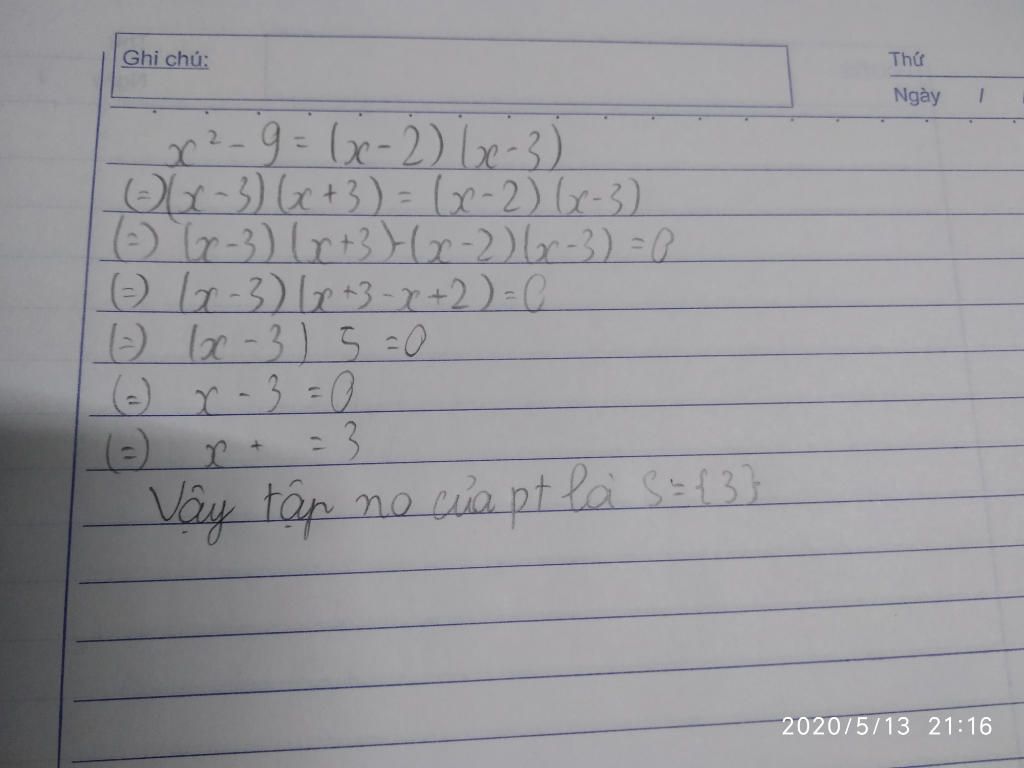 Ghi chú:
Thứ
Ngày / /
x² - 9 = (x-2)(x-3)
(=)(x-3)(x+3) = (x-2)(x-3)
(=) (x-3)(x+3)-(x-2)(x-3) = 0
(=) (x-3)(x+3-x+2)=0
(=) (x-3) 5 =0
(=) x - 3 = 0
(=) x + = 3
Vậy tập no của pt là S={3}
2020/5/13 21:16